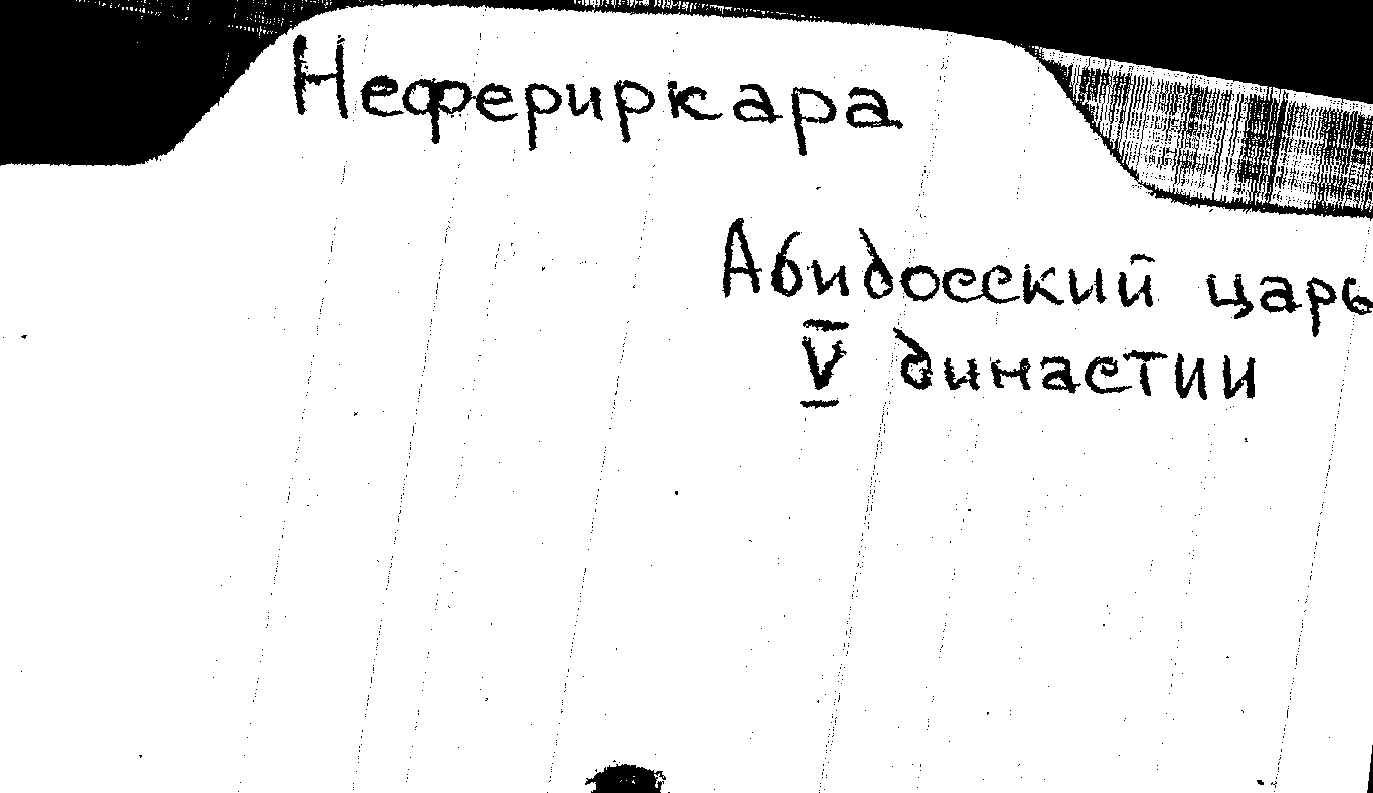 Нефериркара
Абидосский царь
V династии